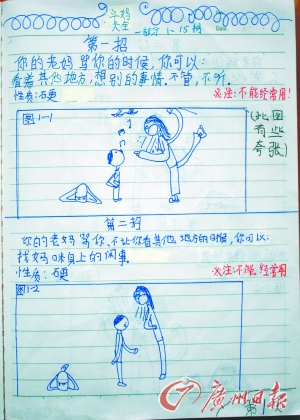 斗妈大全
一部分 1-15招
第一招
你的老妈骂你的时候,你可以:
看着其他地方,想别的事情。不管,不听。
性质:石更
※注:不能经常用!
图1-1
(此图有些夸张)
第二招
你的老妈骂你,不让你看其他地方的时候,你可以:
找妈咪身上的闲事。
性质:石更
※注:不能经常用
图1-2
广州日报